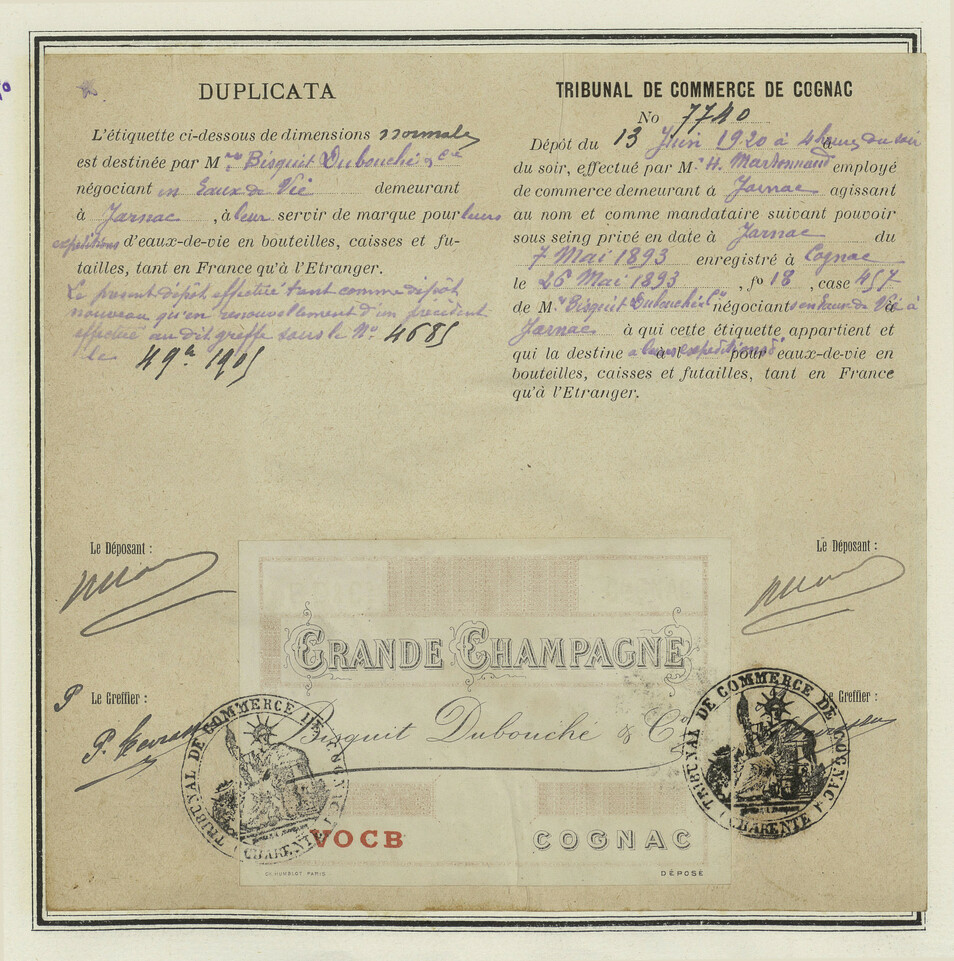 DUPLICATA
L'étiquette ci-dessous de dimensions normales
est destinée par M.rs Bisquit Dubouché & Cie
négociant en Eaux de Vie demeurant
à Jarnac, à leur servir de marque pour leurs
expéditions d'eaux-de-vie en bouteilles, caisses et fu-
tailles, tant en France qu'à l'Etranger.
Le présent dépôt effectué tant comme dépôt
nouveau qu'en renouvellement d'un précédent
effectué au dit greffe sous le No. 4685
le 1905
TRIBUNAL DE COMMERCE DE COGNAC
No 7740
Dépôt du 13 Juin 1920 à 4 heures du soir
du soir, effectué par M. H. employé
de commerce demeurant à Jarnac agissant
au nom et comme mandataire suivant pouvoir
sous seing privé en date à Jarnac du
7 Mai 1893 enregistré à Cognac
le 26 Mai 1893, fo 18, case 457
de M.rs Bisquit Dubouché & Cie négociants en Eaux de Vie à
Jarnac à qui cette étiquette appartient et
qui la destine à leurs expéditions d' pour eaux-de-vie en
bouteilles, caisses et futailles, tant en France
qu'à l'Etranger.
Le Déposant :
Le Déposant :
GRANDE CHAMPAGNE
P Le Greffier :
Le Greffier :
Bisquit Dubouché & Co
TRIBUNAL DE COMMERCE DE COGNAC (CHARENTE)
TRIBUNAL DE COMMERCE DE COGNAC (CHARENTE)
VOCB
COGNAC
CH. HUMBLOT PARIS
DÉPOSÉ